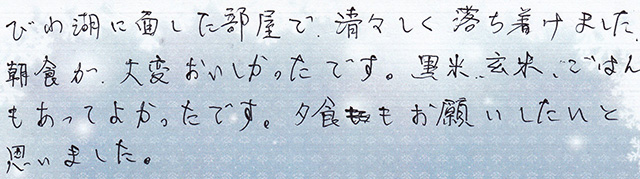 びわ湖に面した部屋で、清々しく落ち着けました。
朝食が、大変おいしかったです。黒米、玄米、ごはん
もあってよかったです。夕食もお願いしたいと
思いました。